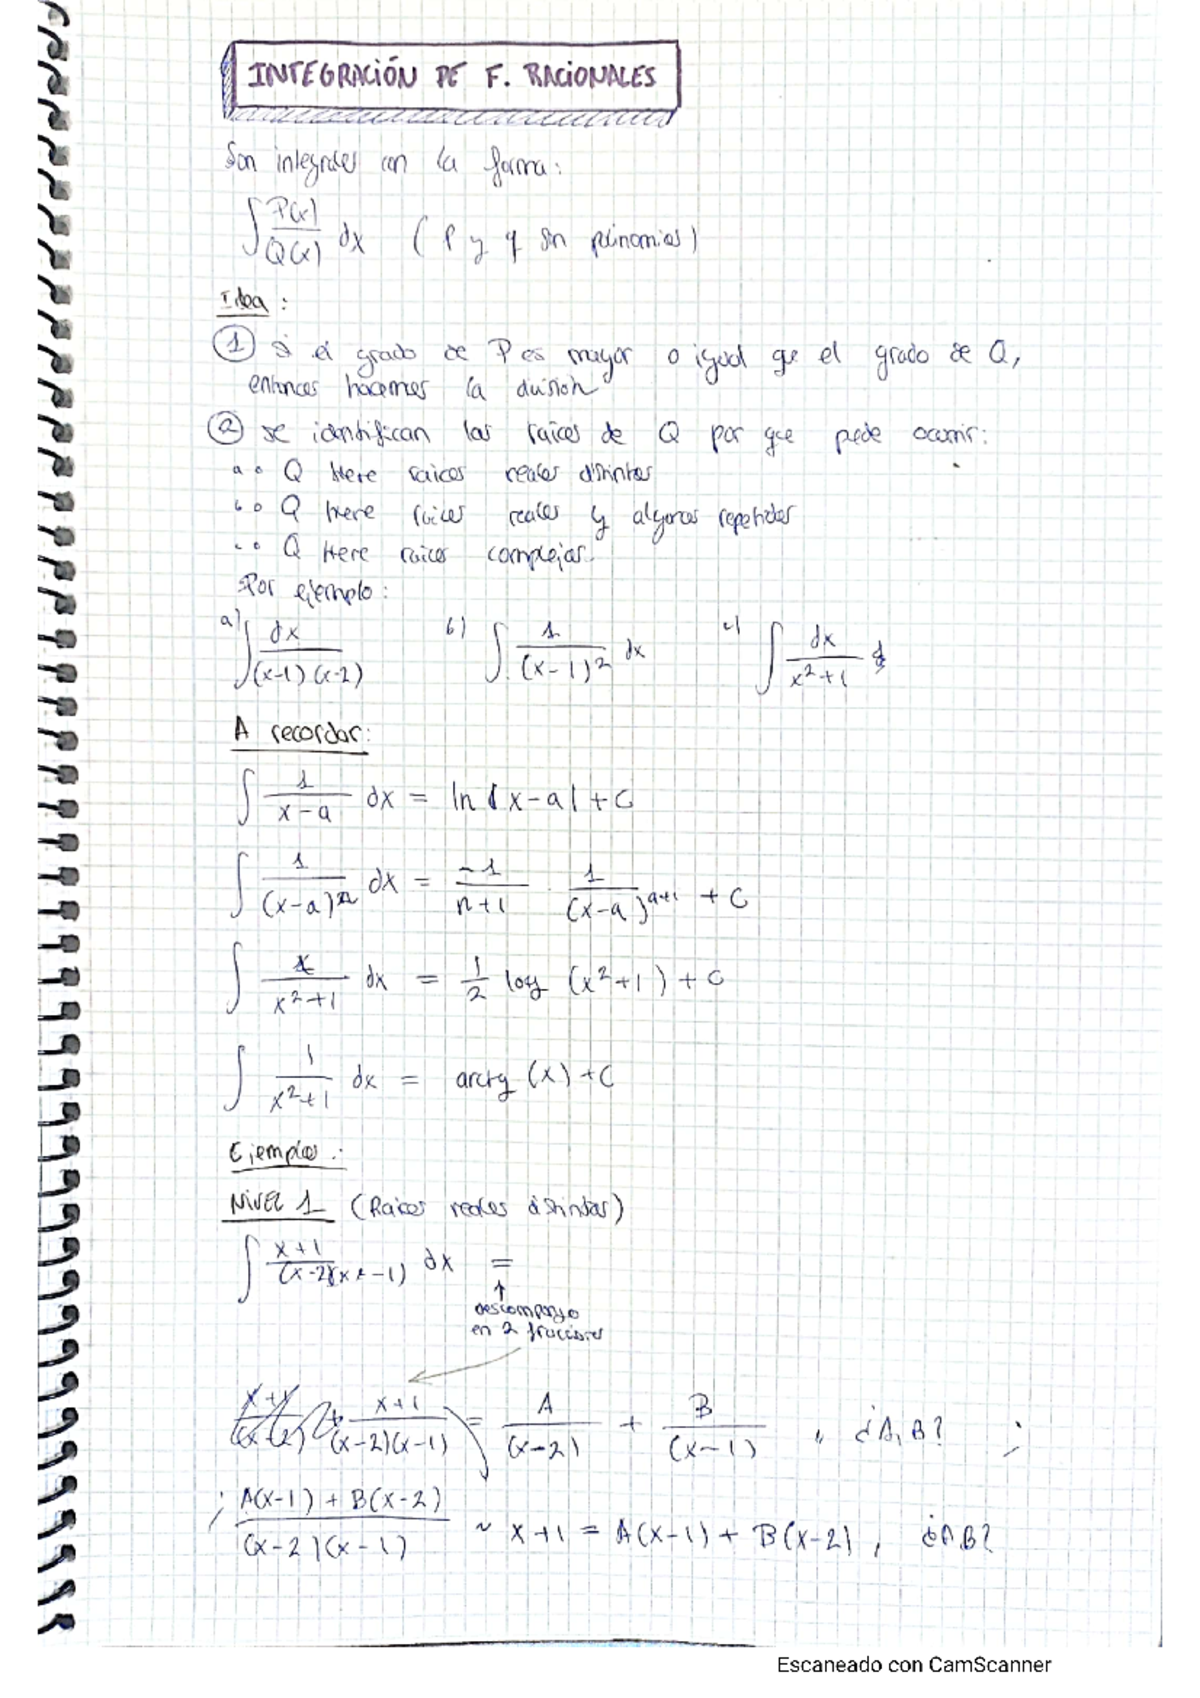 INTEGRACIÓN DE F. RACIONALES
Son integrales con la forma:
∫ P(x)/Q(x) dx ( P y q son polinomios)
Idea:
① Si el grado de P es mayor o igual que el grado de Q,
entonces hacemos la división
② se identifican las raíces de Q por que puede ocurrir:
a. Q tiene raices reales distintas
b. Q tiene raices reales y algunas repetidas
c. Q tiene raices complejas.
Por ejemplo:
a) ∫ dx/(x-1)(x-2) b) ∫ 1/(x-1)² dx c) ∫ dx/x²+1
A recordar:
∫ 1/x-a dx = ln |x-a| + C
∫ 1/(x-a)ⁿ dx = -1/n+1 · 1/(x-a)ⁿ⁺¹ + C
∫ x/x²+1 dx = 1/2 log (x²+1) + C
∫ 1/x²+1 dx = arctg (x) + C
Ejemplos:
NIVEL 1 (Raices reales distintas)
∫ x+1/(x-2)(x-1) dx =
↑
descompongo
en 2 fracciones
x+1/(x-2)(x-1) = A/(x-2) + B/(x-1) , ¿A, B? ;
; A(x-1) + B(x-2)/(x-2)(x-1) ~ x+1 = A(x-1) + B(x-2) , ¿A B?
Escaneado con CamScanner